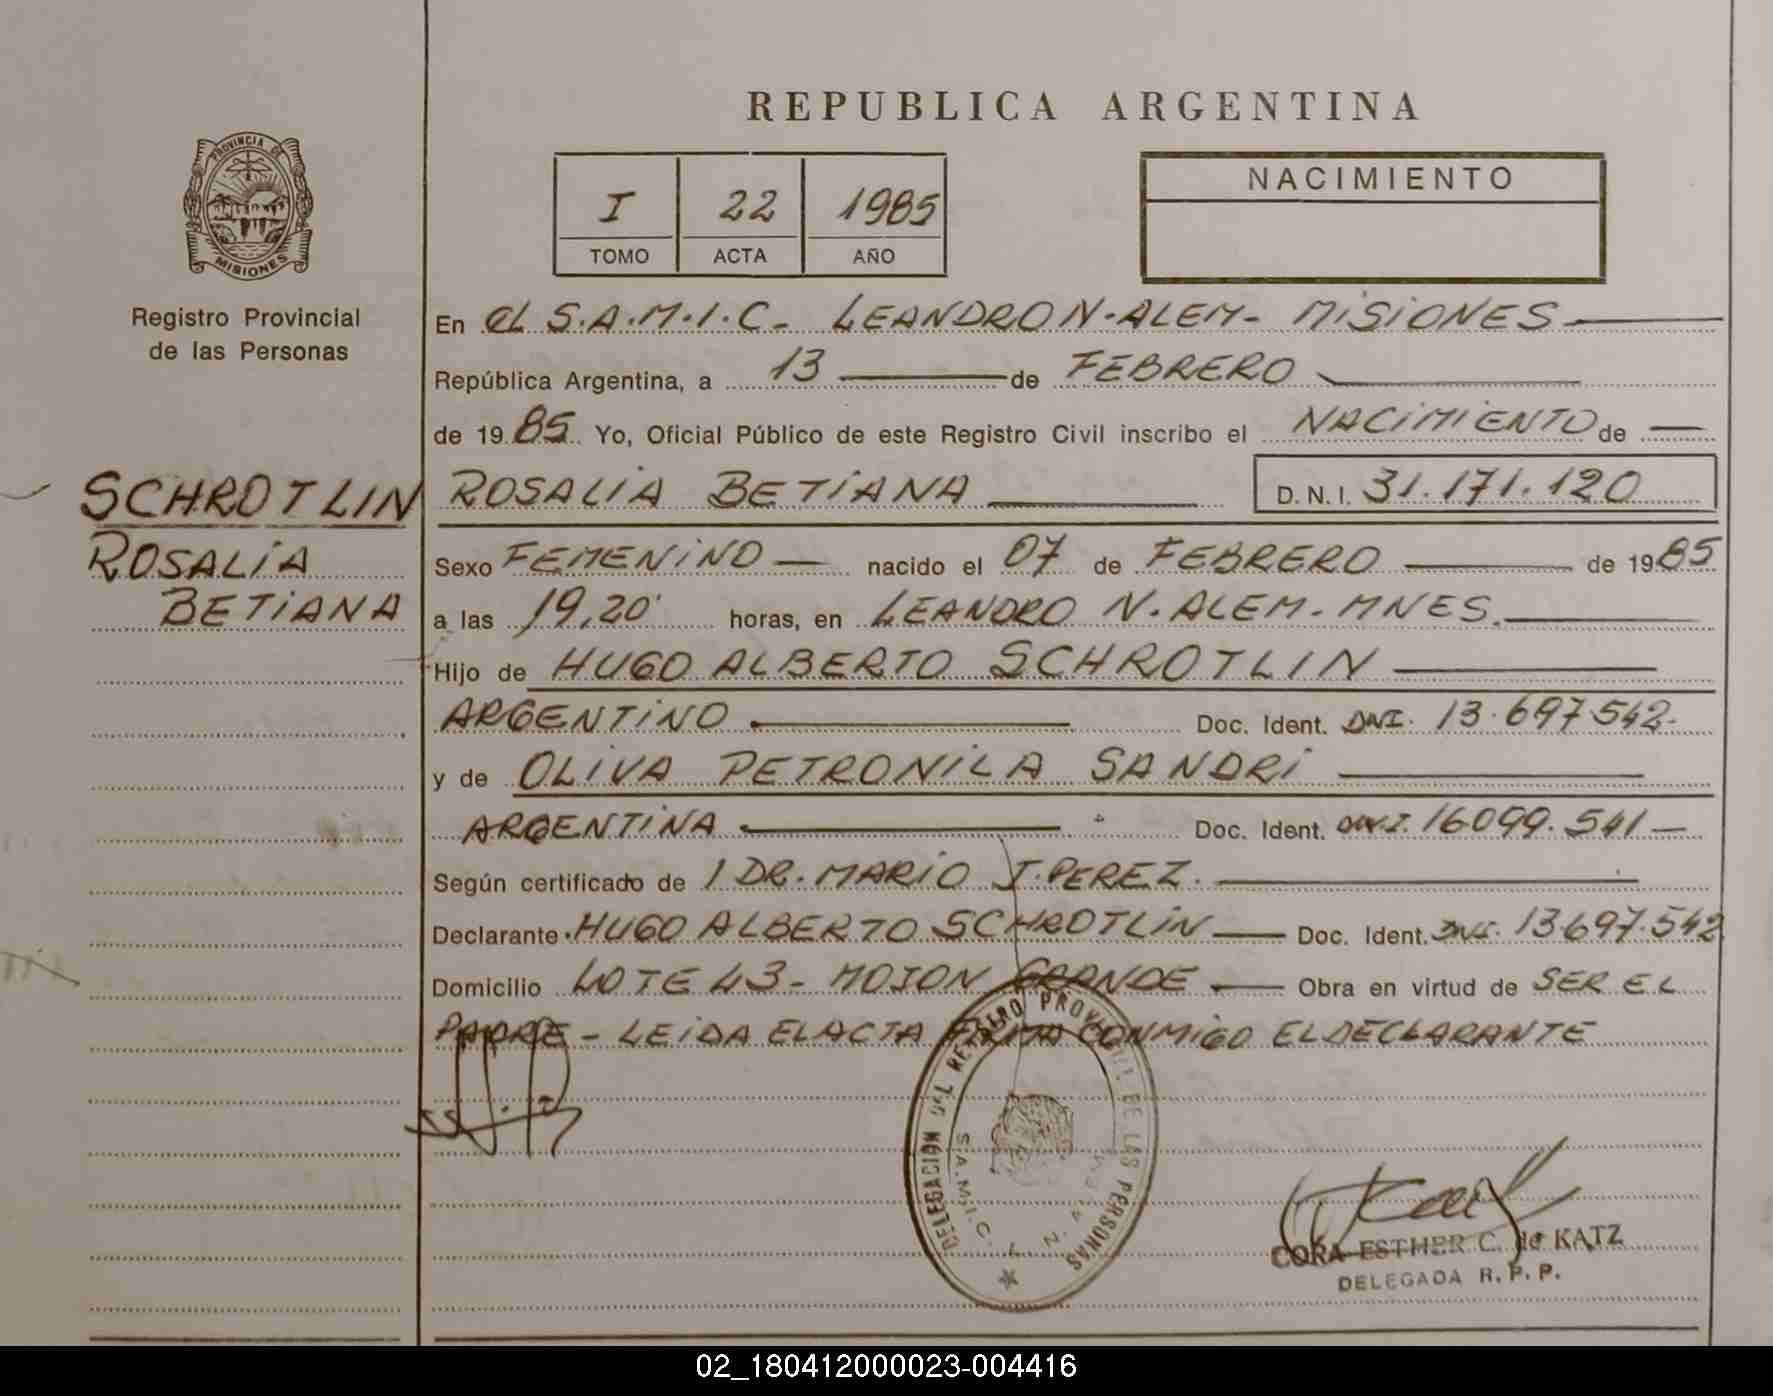 REPUBLICA ARGENTINA
PROVINCIA DE
MISIONES
Registro Provincial
de las Personas
I 22 1985
TOMO ACTA AÑO
NACIMIENTO
En el S.A.M.I.C. LEANDRO N. ALEM - MISIONES
República Argentina, a 13 de FEBRERO
de 1985 Yo, Oficial Público de este Registro Civil inscribo el NACIMIENTO de
SCHROTLIN
ROSALIA
BETIANA
ROSALIA BETIANA D.N.I. 31.171.120
Sexo FEMENINO nacido el 07 de FEBRERO de 1985
a las 19,20' horas, en LEANDRO N. ALEM - MNES.
Hijo de HUGO ALBERTO SCHROTLIN
ARGENTINO Doc. Ident. DNI. 13.697.542-
y de OLIVA PETRONILA SANDRI
ARGENTINA Doc. Ident. DNI. 16099.541-
Según certificado de / DR. MARIO J. PEREZ.
Declarante HUGO ALBERTO SCHROTLIN Doc. Ident. DNI. 13.697.542
Domicilio LOTE 43 - MOJON GRANDE Obra en virtud de SER EL
PADRE - LEIDA EL ACTA FIRMA CONMIGO EL DECLARANTE
DELEGACION DEL REGISTRO PROVINCIAL DE LAS PERSONAS
S.A.M.I.C. L. N. ALEM
CORA ESTHER C. de KATZ
DELEGADA R.P.P.
02_180412000023-004416